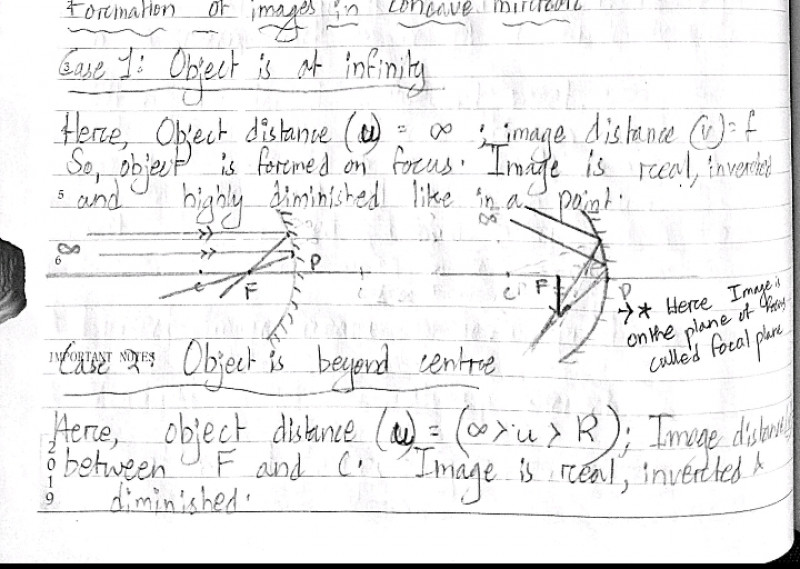 Formation of images in concave mirror
Case 1: Object is at infinity
Here, Object distance (u) = ∞ ; image distance (v) = f
So, object is formed on focus. Image is real, inverted
5 and highly diminished like in a point.
∞
∞
6
P
C
F
C
F
P
→* Here Image is
on the plane of focus
called focal plane
IMPORTANT NOTES
Case 2: Object is beyond centre
Here, object distance (u) = (∞ > u > R); Image distance
between F and C. Image is real, inverted &
diminished.
2019